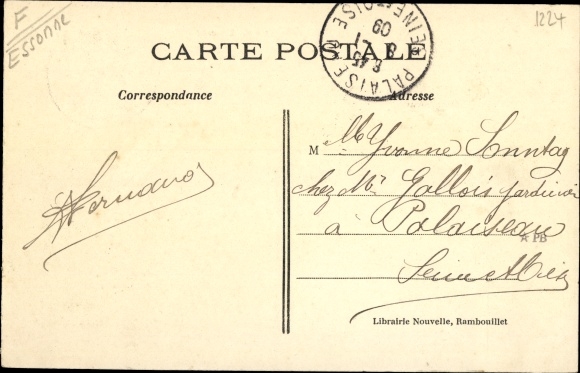 F
ESSONNE
1224
CARTE POSTALE
PALAISEAU
SEINE-ET-OISE
8 45
09
Correspondance
Adresse
M Mlle Yvonne Sonntag
chez Mr Gallois jardinier
à Palaiseau
PB
Seine et Oise
Fernand
Librairie Nouvelle, Rambouillet